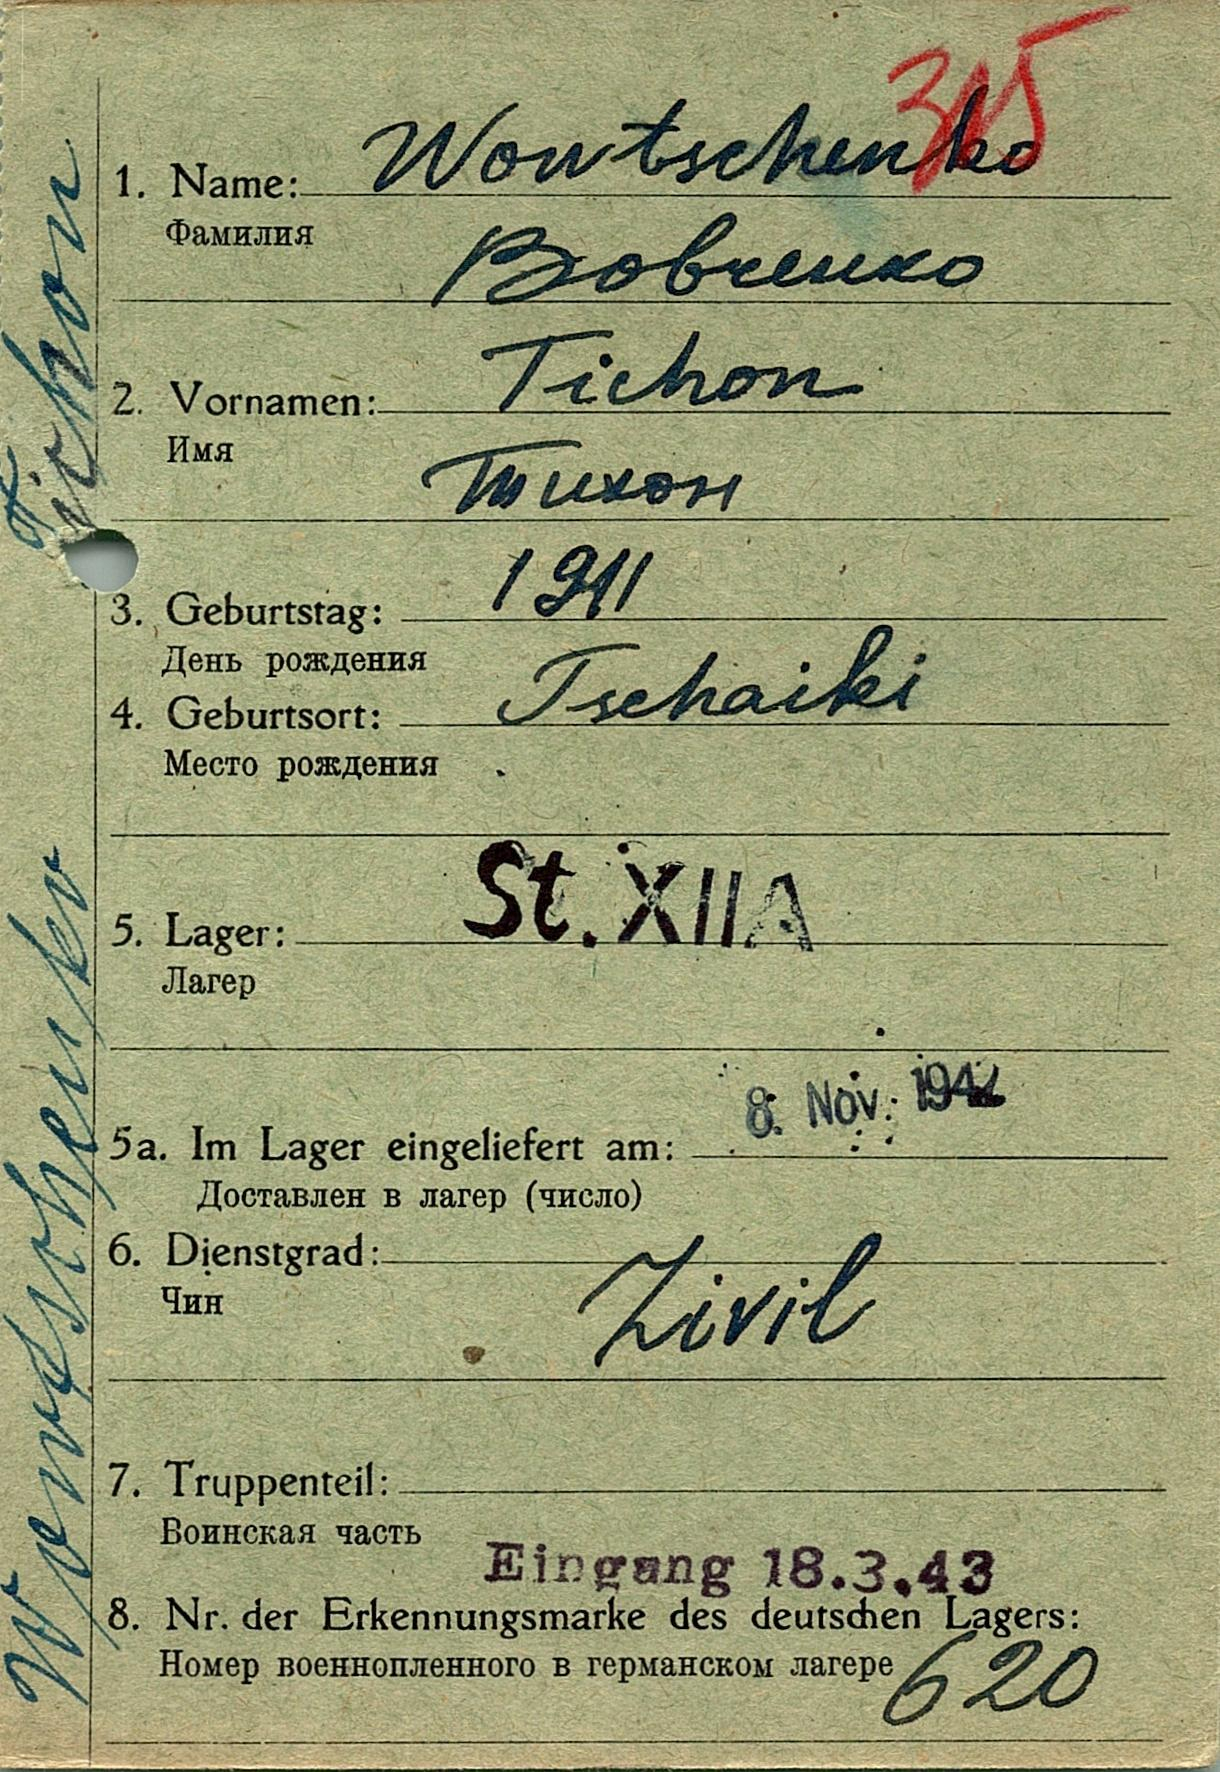 315
1. Name: Wowtschenko
Фамилия
Вовченко
2. Vornamen: Tichon
Имя
Тихон
3. Geburtstag: 1911
День рождения
4. Geburtsort: Tschaiki
Место рождения
5. Lager: St. XII A
Лагер
5a. Im Lager eingeliefert am: 8. Nov. 1942
Доставлен в лагер (число)
6. Dienstgrad: Zivil
Чин
7. Truppenteil:
Воинская часть
Eingang 18.3.43
8. Nr. der Erkennungsmarke des deutschen Lagers:
Номер военнопленного в германском лагере 620
Wowtschenko Tichon